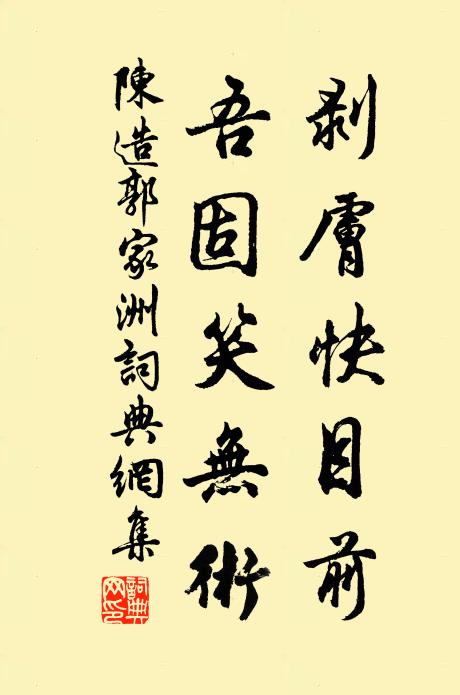 剥膚快目前
吾固笑無術
陳造郭家洲詞典網集
詞典網印